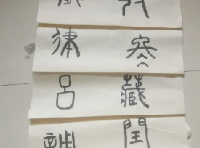 冬藏閏
律呂調